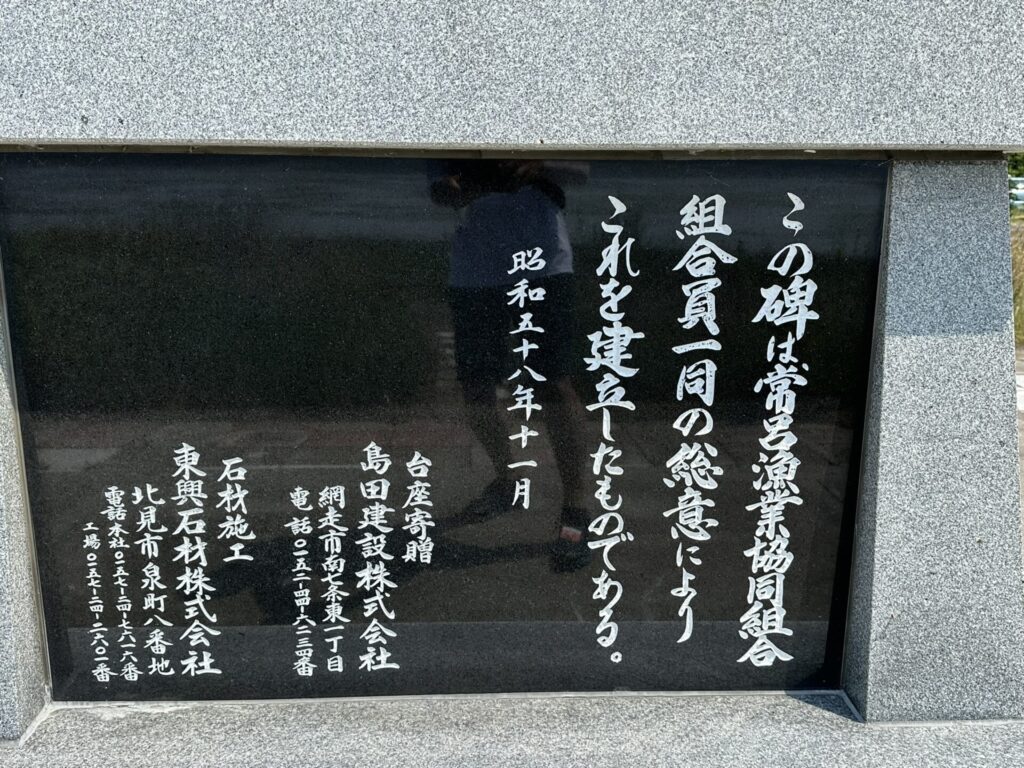 この碑は常呂漁業協同組合
組合員一同の総意により
これを建立したものである。
昭和五十八年十一月
台座寄贈
島田建設株式会社
網走市南七条東一丁目
電話〇一五二-四四-六二三四番
石材施工
東興石材株式会社
北見市泉町八番地
電話本社〇一五七-二四-七六一六番
工場〇一五七-二四-二六〇一番